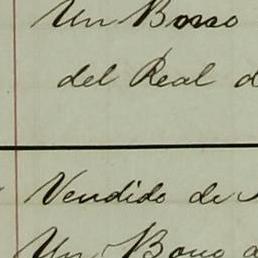 Un Bono
del Real d
Vendido de
Un Bono d